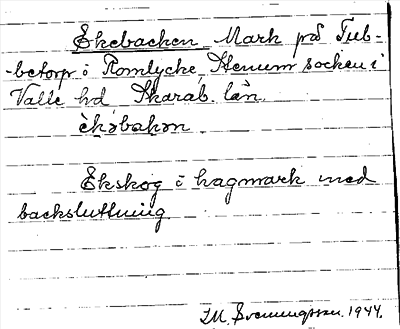 Ekebacken Mark på Tub-
-betorp i Romlycke Stenum socken i
Valle hd Skarab. län.
èkəbakən
Ekskog i hagmark med
backsluttning
I.M. Svenungsson. 1944.